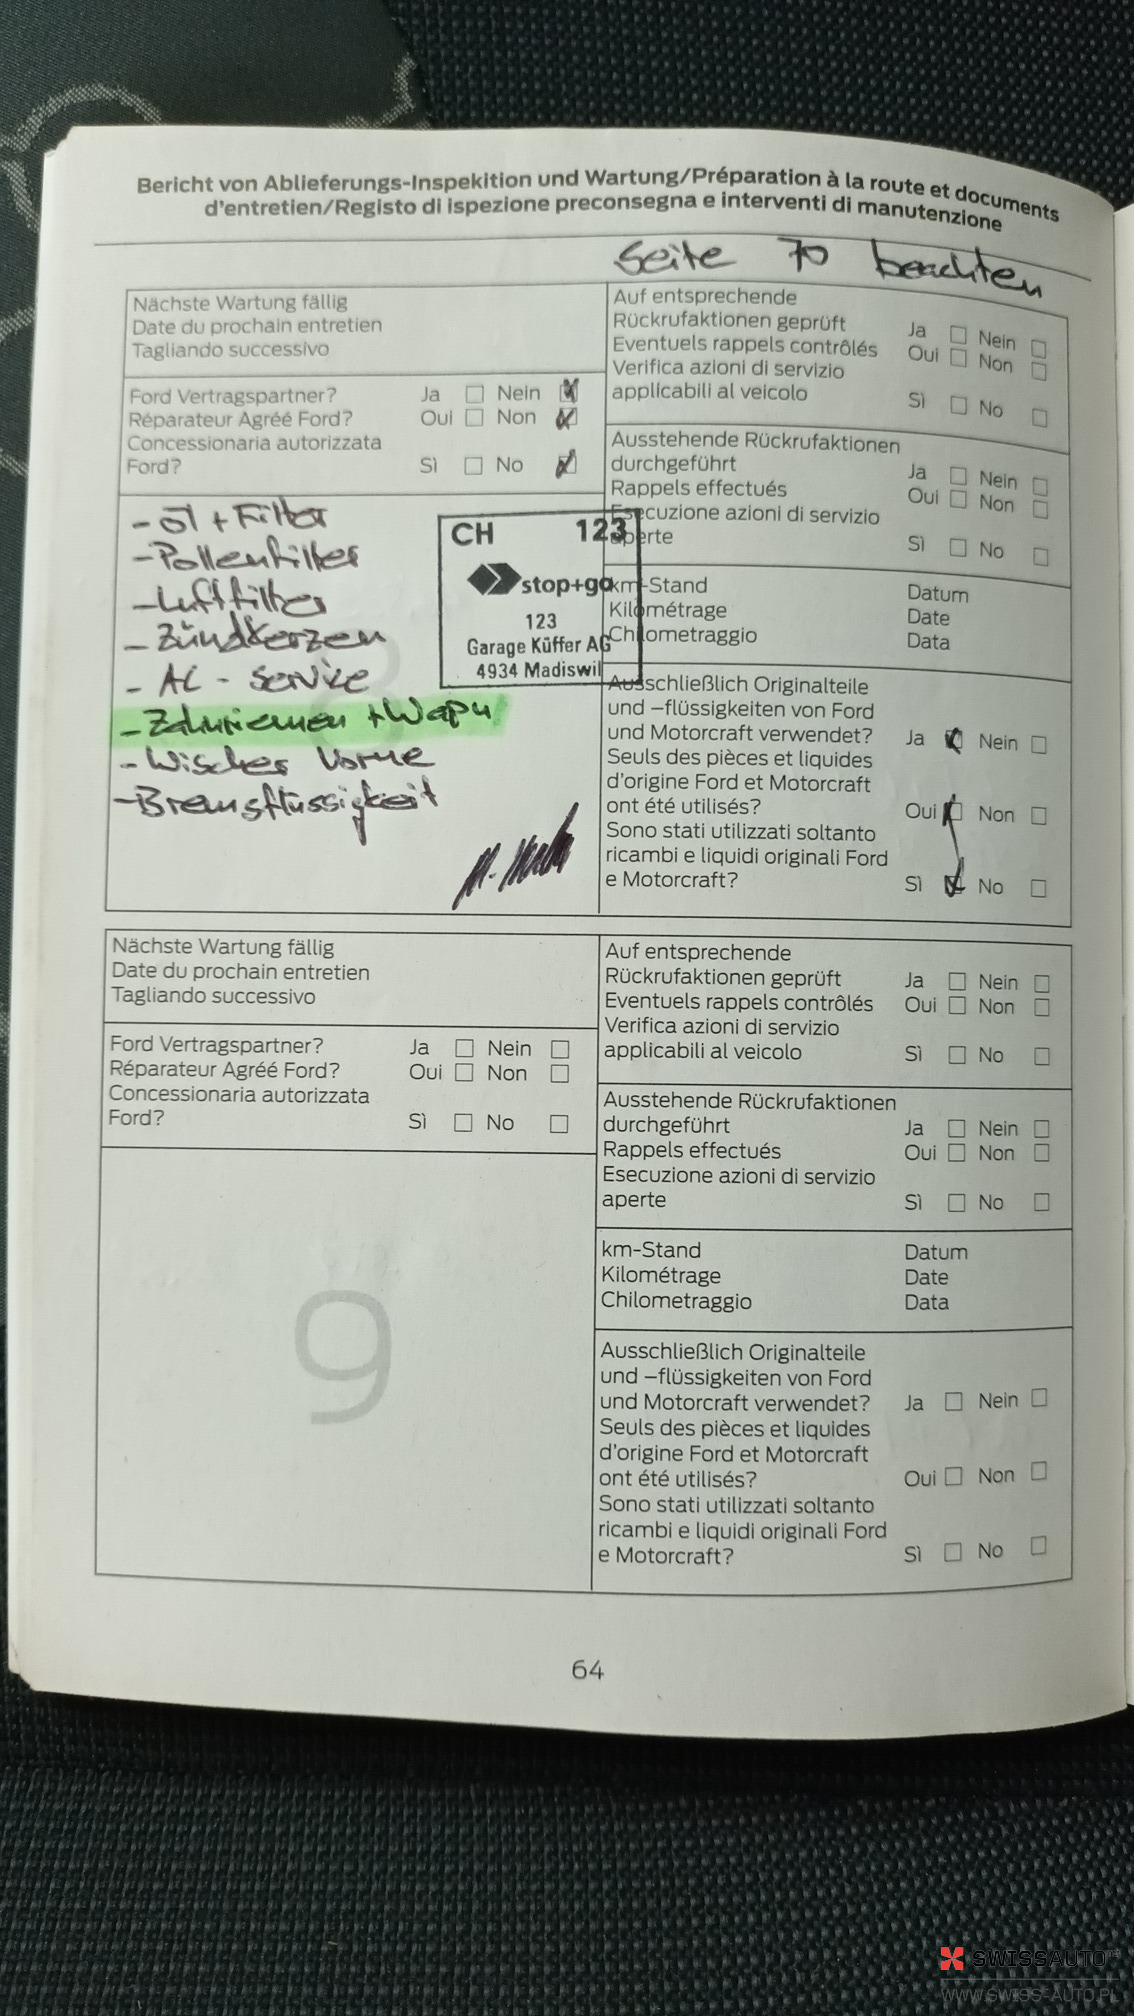 Bericht von Ablieferungs-Inspekition und Wartung/Préparation à la route et documents
d'entretien/Registo di ispezione preconsegna e interventi di manutenzione
Seite 70 beachten
Nächste Wartung fällig
Date du prochain entretien
Tagliando successivo
Ford Vertragspartner? Ja Nein
Réparateur Agréé Ford? Oui Non
Concessionaria autorizzata
Ford? Sì No
- Öl + Filter
- Pollenfilter
- Luftfilter
- Zündkerzen
- AC - Service
- Zahnriemen + Wapu
- Wischer Vorne
- Bremsflüssigkeit
CH 123
stop+go
123
Garage Küffer AG
4934 Madiswil
Auf entsprechende
Rückrufaktionen geprüft Ja Nein
Eventuels rappels contrôlés Oui Non
Verifica azioni di servizio
applicabili al veicolo Sì No
Ausstehende Rückrufaktionen
durchgeführt Ja Nein
Rappels effectués Oui Non
Esecuzione azioni di servizio
aperte Sì No
km-Stand Datum
Kilométrage Date
Chilometraggio Data
Ausschließlich Originalteile
und –flüssigkeiten von Ford
und Motorcraft verwendet? Ja Nein
Seuls des pièces et liquides
d'origine Ford et Motorcraft
ont été utilisés? Oui Non
Sono stati utilizzati soltanto
ricambi e liquidi originali Ford
e Motorcraft? Sì No
Nächste Wartung fällig
Date du prochain entretien
Tagliando successivo
Ford Vertragspartner? Ja Nein
Réparateur Agréé Ford? Oui Non
Concessionaria autorizzata
Ford? Sì No
9
Auf entsprechende
Rückrufaktionen geprüft Ja Nein
Eventuels rappels contrôlés Oui Non
Verifica azioni di servizio
applicabili al veicolo Sì No
Ausstehende Rückrufaktionen
durchgeführt Ja Nein
Rappels effectués Oui Non
Esecuzione azioni di servizio
aperte Sì No
km-Stand Datum
Kilométrage Date
Chilometraggio Data
Ausschließlich Originalteile
und –flüssigkeiten von Ford
und Motorcraft verwendet? Ja Nein
Seuls des pièces et liquides
d'origine Ford et Motorcraft
ont été utilisés? Oui Non
Sono stati utilizzati soltanto
ricambi e liquidi originali Ford
e Motorcraft? Sì No
64
SWISSAUTO
WWW.SWISS-AUTO.PL